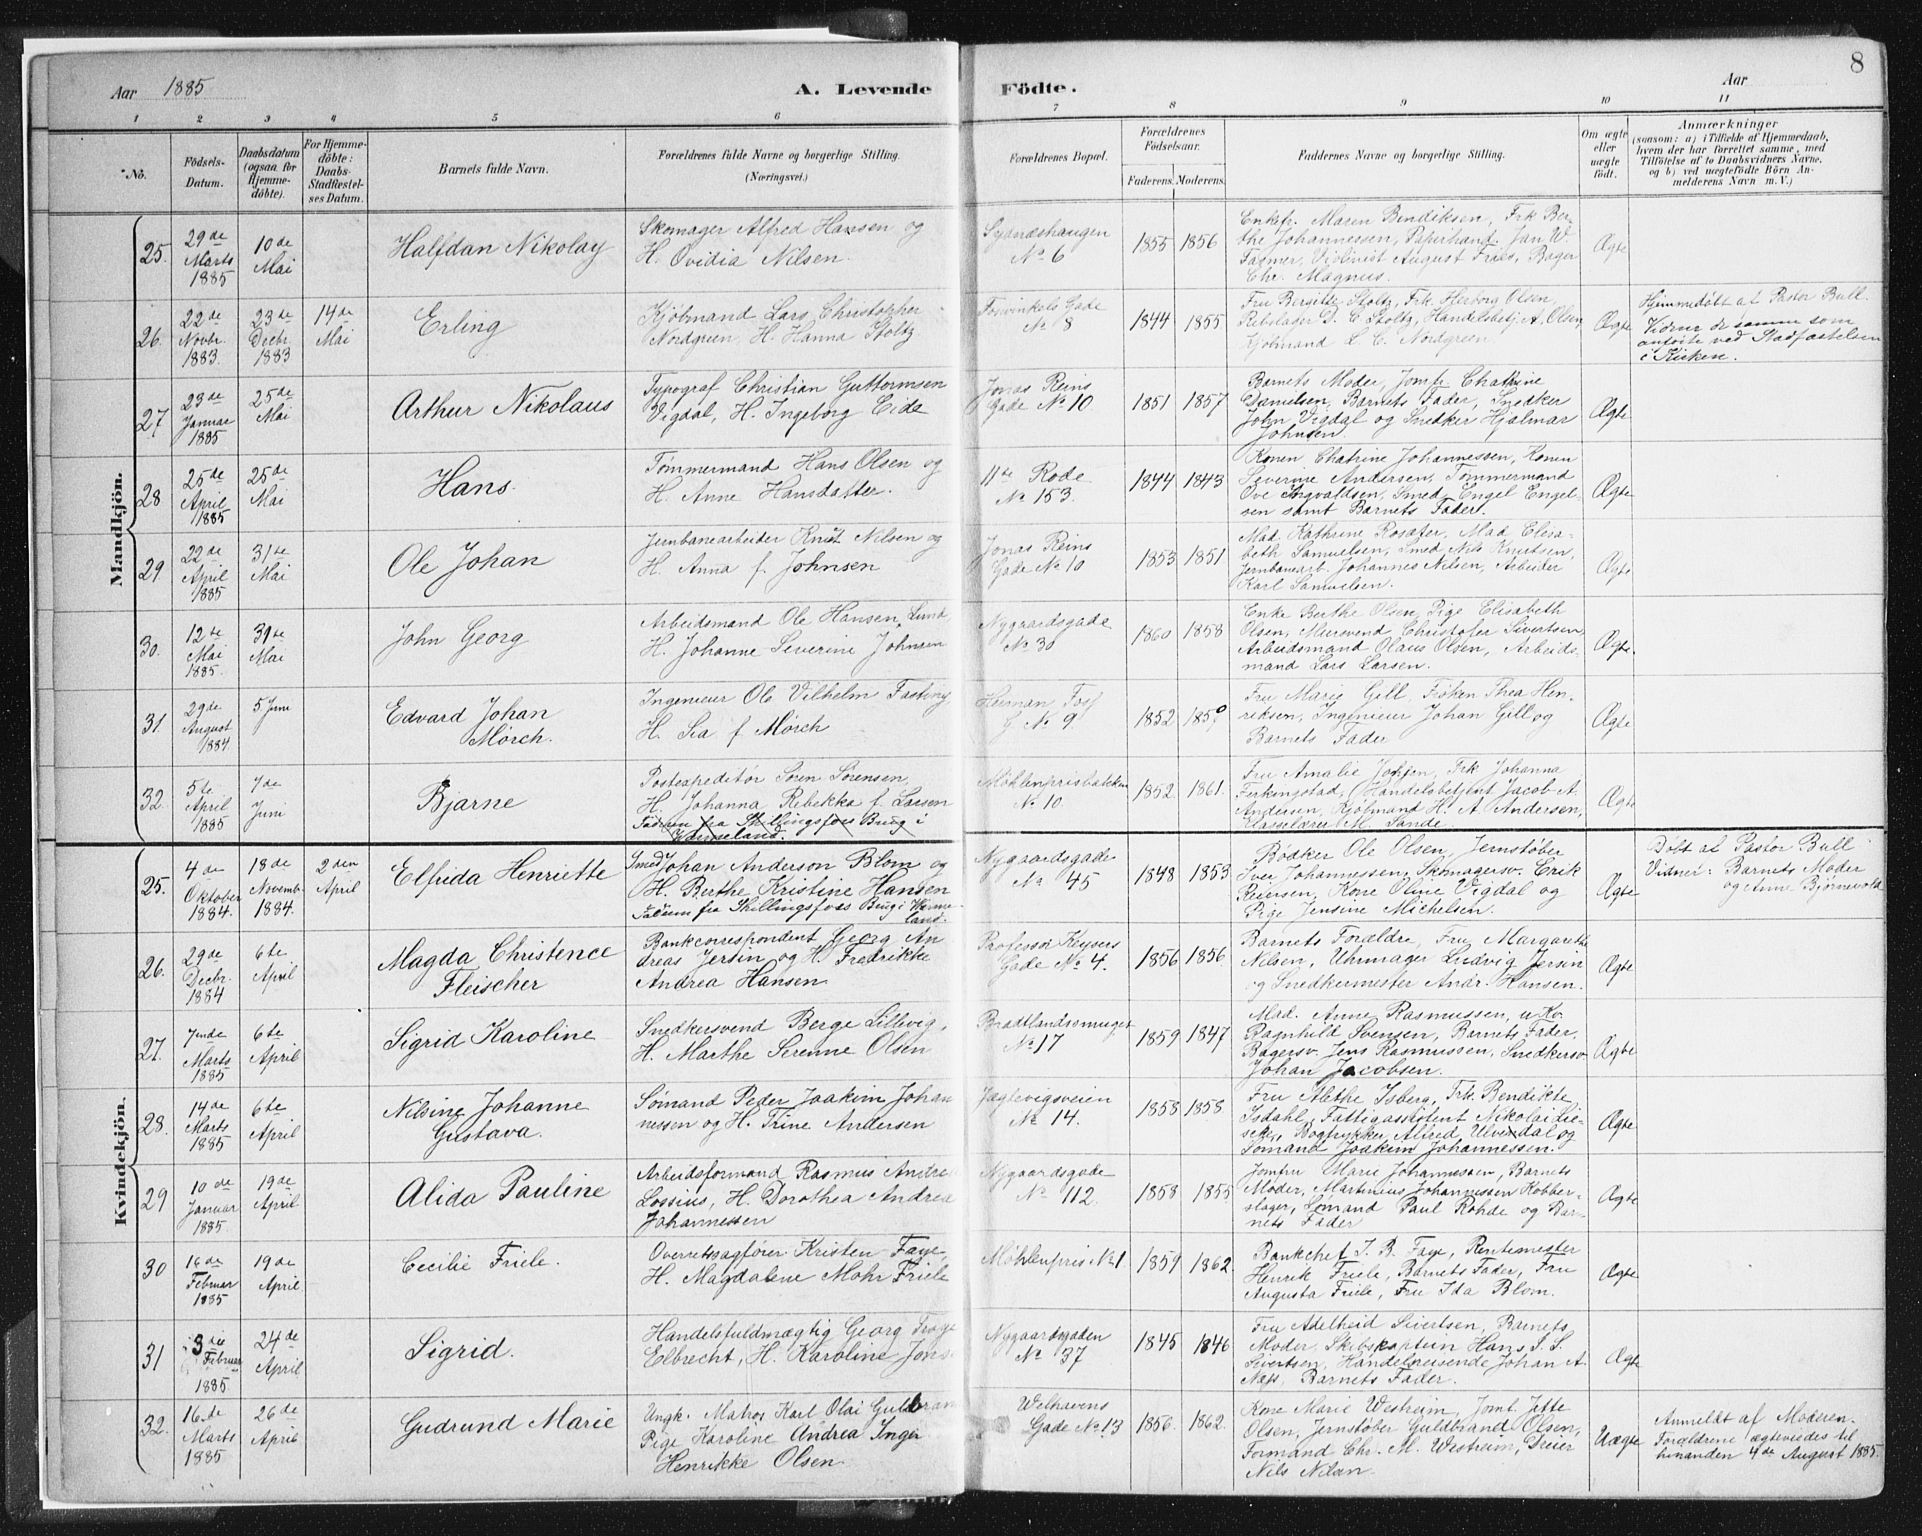 Aar 1885
A. Levende Födte.
Aar
8
1 2 3 4 5 6 7 8 9 10 11
No.
Födsels-
Datum.
Daabsdatum
(ogsaa for
Hjemme-
döbte).
For Hjemme-
döbte:
Daabs-
Stadfæstel-
ses Datum.
Barnets fulde Navn.
Forældrenes fulde Navne og borgerlige Stilling.
(Næringsvei.)
Forældrenes Bopæl.
Forældrenes
Födselsaar.
Faderens. Moderens.
Faddernes Navne og borgerlige Stilling.
Om ægte
eller
uægte
födt.
Anmærkninger
(saasom: a) i Tilfælde af Hjemmedaab,
hvem der har forrettet samme, med
Tilföielse af to Daabsvidners Navne,
og b) ved uægtefödte Börn An-
melderens Navn m. V.)
Mandkjön.
25.
29de
Marts
1885
10de
Mai
Halfdan Nikolay
Skomager Alfred Hansen og
H. Ovidia Nilsen.
Sydnæshaugen
No 6
1855 1856
Enkefr. Maren Bendiksen, Frk Ber-
the Johannessen, Papirhand. Jan W.
Fasmer, Violinist August Fries, Bager
Chr. Magnus.
Ægte
26.
22de
Novbr.
1883
23de
Decbr
1883
14de
Mai
Erling
Kjöbmand Lars Christopher
Nordgreen, H. Hanna Stoltz
Fosvinkels Gade
No 8
1844 1855
Fru Bergitte Stoltz, Frk. Herborg Olsen,
Rebslager D. C Stoltz, Handelsbetj. A. Olsen,
Kjöbmand L. C. Nordgreen
Ægte
Hjemmedöbt af Pastor Bull.
Vidner de samme som
anförte ved Stadfæstelsen
i Kirken.
27
23de
Januar
1885
25de
Mai
Arthur Nikolaus
Typograf Christian Guttormsen
Vigdal, H. Ingeborg Eide
Jonas Reins
Gade No 10
1851 1857
Barnets Moder, Jomfr Chatrine
Danielsen, Barnets Fader, Snedker
John Vigdal og Snedker Hjalmar
Johnsen.
Ægte
28
25de
April
1885
25de
Mai
Hans.
Tømmermand Hans Olsen og
H. Anne Hansdatter.
11te Rode
No 153.
1844 1843
Konen Chatrine Johannessen, Konen
Severine Andersen, Tømmermand
Ove Ingvaldsen, Smed Engel Engel-
sen samt Barnets Fader.
Ægte
29
22de
April
1885
31te
Mai
Ole Johan
Jernbanearbeider Knut Nilsen og
H. Anna f. Johnsen
Jonas Reins
Gade No 10
1853 1851
Mad Kathrine Rosafer, Mad Elisa-
beth Samuelsen, Smed Nils Knutsen,
Jernbanearb. Johannes Nilsen, Arbeider
Karl Samuelsen.
Ægte
30.
12te
Mai
1885
31te
Mai
John Georg
Arbeidsmand Ole Hansen Lund
H. Johanne Severine Johnsen
Nygaardsgade
No 30
1860 1858
Enke Berthe Olsen, Pige Elisabeth
Olsen, Mursvend Christofer Sivertsen,
Arbeidsmand Olaus Olsen, Arbeids-
mand Lars Larsen.
Ægte.
31.
29de
August
1884
5 Juni
Edvard Johan
Mörch.
Ingeniør Ole Vilhelm Fasting
H. Sia f Mörch
Herman Foss
G No 9.
1852 1850
Fru Marie Gill, Frøken Thea Hen-
riksen, Ingeniør Johan Gill og
Barnets Fader
Ægte
32.
5te
April
1885
7de
Juni
Bjarne
Postexpeditör Sören Sörensen,
H. Johanna Rebekka f. Larsen
Faderen fra Skillingsfors Brug i
Vermeland.
Møhlenprisbakken
No 10.
1852 1861.
Fru Amalie Johsen, Frk Johanna
Ferkingstad, Handelsbetjent Jacob A.
Andersen, Kjöbmand H. A. Andersen,
Klasselærer M. Sande.
Ægte
Kvindekjön.
25.
4de
Oktober
1884.
18de
Novemb.
1884.
2den
April
Elfrida Henriette
Smed Johan Anderson Blom og
H. Berthe Kristine Hansen
Faderen fra Skillingsfors Brug i Werme-
land.
Nygaardsgade
No 45
1848 1853
Bødker Ole Olsen, Jernstøber
Iver Johannessen, Skomagersv. Erik
Reiersen, Kone Oline Vigdal og
Pige Jensine Michelsen.
Ægte
Döbt af Pastor Bull
Vidner: Barnets Moder
og Anne Bjørnevold
26.
29de
Decbr
1884
6te
April
Magda Christence
Fleischer
Bankcorrespondent Georg An
dreas Jersin og H. Fredrikke
Andrea Hansen
Professor Keysers
Gade No 4.
1856 1856
Barnets Forældre, Fru Margarethe
Nilsen, Uhrmager Ludvig Jersin
og Snedkermester Andr. Hansen.
Ægte
27.
7nde
Marts
1885
6te
April
Sigrid Karoline
Snedkersvend Berge Lillevig,
H. Marthe Serenne Olsen
Bradtlandssmuget
No 17
1859 1847
Mad. Anne Rasmussen, u Ko.
Ragnhild Svensen, Barnets Fader,
Bagersv. Jens Rasmussen, Snedkersv.
Johan Jacobsen.
Ægte
28.
14de
Marts
1885
6te
April
Nilsine Johanne
Gustava.
Sømand Peder Joakim Johan
nessen og H. Trine Andersen
Jægtevigsveien
No 14.
1858 1858
Fru Alethe Isberg, Frk. Bendikte
Isdahl, Fattigassistent Nikolai Lie-
Bogtrykker Alfred Ulvendal og
Sömand Joakim Johannessen.
Ægte
29
10de
Januar
1885.
19de
April
Alida Pauline
Arbeidsformand Rasmus Andre
Lossius, H. Dorothea Andrea
Johannessen
Nygaardsgade
No 112.
1858 1855
Jomfru Marie Johannessen, Barnets
Moder, Martinius Johannessen Kobber-
slager, Sömand Paul Rohde og Bar-
nets Fader
Ægte
30
16de
Februar
1885
19de
April
Cecilie Friele.
Overretssagförer Kristen Faye,
H. Magdalene Mohr Friele
Møhlenpris No 1.
1859 1862.
Bankchef J. B. Faye, Rentemester
Henrik Friele, Barnets Fader, Fru
Augusta Friele, Fru Ida Blom.
Ægte
31
3die
Februar
1885.
24de
April
Sigrid.
Handelsfuldmægtig Georg
Elbrecht, H. Karoline Jons
Nygaardsgaden
No 37
1845 1846
Fru Adelheid Sivertsen, Barnets
Moder, Skibskaptein Hans S. S.
Sivertsen, Handelsreisende Johan A.
Næss, Barnets Fader.
Ægte
32.
16de
Marts
1885
26de
April
Gudrund Marie
Ungk. Matros Karl Olai Guldbran
Pige Karoline Andrea Inger
Henrikke Olsen.
Welhavens
Gade No 13
1856. 1862.
Kone Marie Westrheim, Jomf. Jette
Olsen, Jernstøber Guldbrand Olsen,
Formand Chr. M. Westrum, Dreier
Nils Nilsen.
Uægte
Anmeldt af Moderen.
Forældrene ægteviedes til
hinanden 4de August 1885.